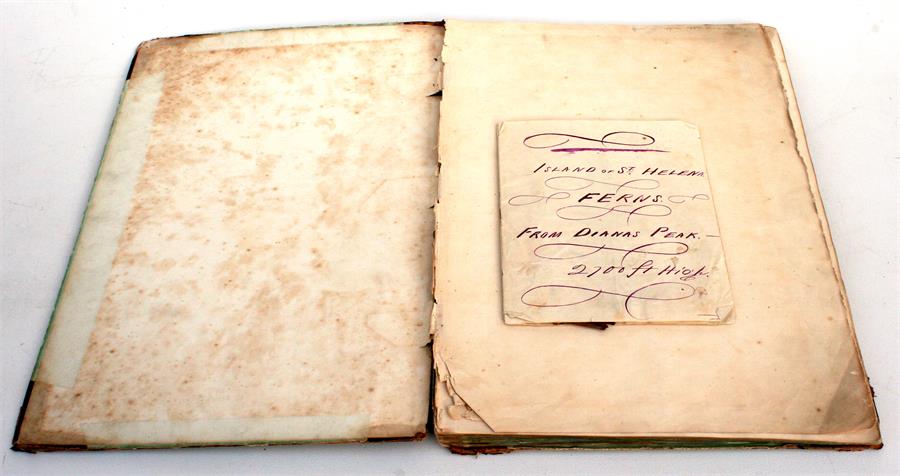 ISLAND OF ST HELENA.
FERNS.
FROM DIANAS PEAK.
2700 ft HIGH.